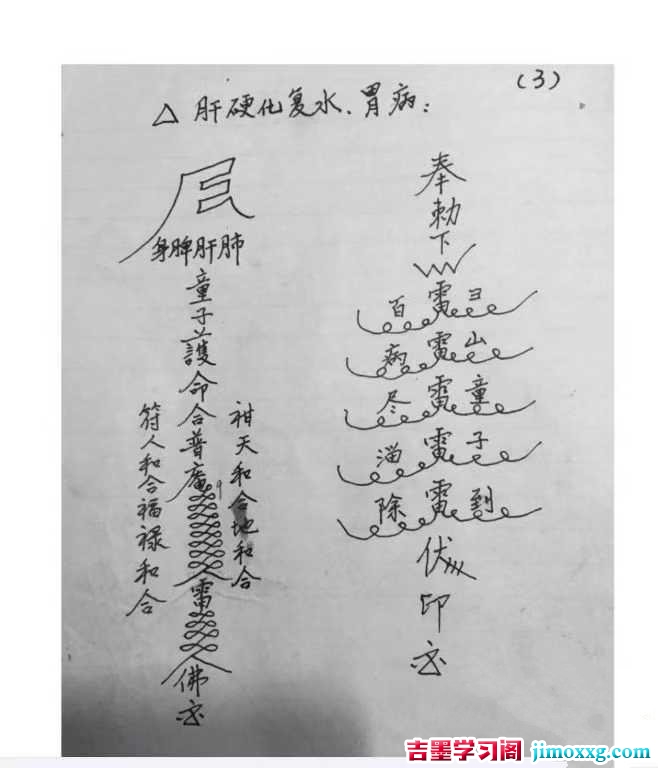 (3)
△ 肝硬化复水、胃病:
身脾肝肺
童子護命合普庵
雷
佛
符人和合福禄和合
祖天和合地和合
奉勅下
百雷彐
病雷山
尽雷童
消雷子
除雷到
伏
印
吉墨学习阁 jimoxxg.com